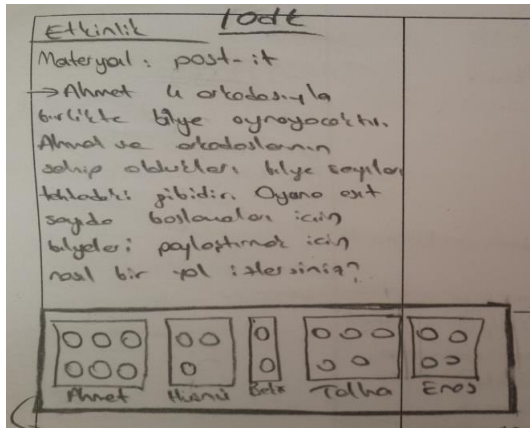 Etkinlik 10dk
Materyal: post-it
→ Ahmet 4 arkadaşıyla
birlikte bilye oynayacaktır.
Ahmet ve arkadaşlarının
sahip oldukları bilye sayıları
tablodaki gibidir. Oyuna eşit
sayıda başlamaları için
bilyeleri paylaştırmak için
nasıl bir yol izlersiniz?
Ahmet Hüsnü Talha Enes